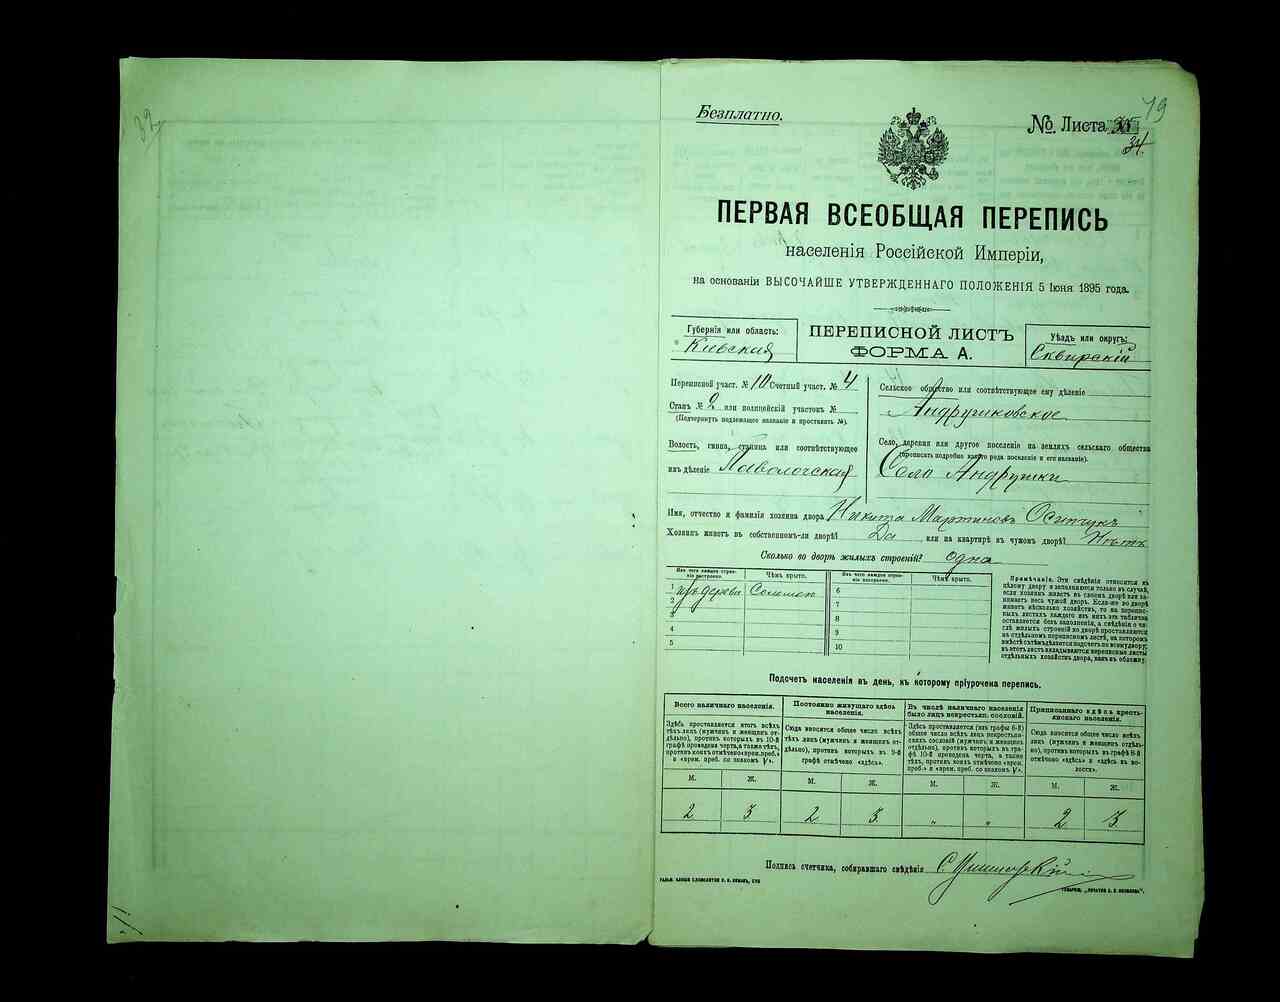 32
79
Безплатно.
№ Листа
34.
ПЕРВАЯ ВСЕОБЩАЯ ПЕРЕПИСЬ
населенія Россійской Имперіи,
на основаніи ВЫСОЧАЙШЕ УТВЕРЖДЕННАГО ПОЛОЖЕНІЯ 5 Іюня 1895 года.
Губернія или область:
Кіевская
ПЕРЕПИСНОЙ ЛИСТЪ
ФОРМА А.
Уѣздъ или округъ:
Сквирскій
Переписной участ. № 10 Счетный участ. № 4
Станъ № 2 или полицейскій участокъ №
(Подчеркнуть подлежащее названіе и проставить №).
Волость, гмина, станица или соотвѣтствующее
имъ дѣленіе Паволочская
Сельское общество или соотвѣтствующее ему дѣленіе
Андрушковское
Село, деревня или другое поселеніе на земляхъ сельскаго общества
(прописать подробно какого рода поселеніе и его названіе).
Село Андрушки
Имя, отчество и фамилія хозяина двора Никита Мартиновъ Осипчукъ
Хозяинъ живетъ въ собственномъ-ли дворѣ? Да или на квартирѣ въ чужомъ дворѣ? Нѣтъ
Сколько во дворѣ жилыхъ строеній? одна
Изъ чего каждое строеніе построено.
Чѣмъ крыто.
Изъ чего каждое строеніе построено.
Чѣмъ крыто.
1 изъ дерева Соломою
2
3
4
5
6
7
8
9
10
Примѣчаніе. Эти свѣдѣнія относятся къ
цѣлому двору и заполняются только въ случаѣ,
если хозяинъ живетъ въ своемъ дворѣ или занимаетъ
весь чужой дворъ. Если-же во дворѣ
живетъ нѣсколько хозяйствъ, то на переписныхъ
листахъ каждаго изъ нихъ эта табличка
оставляется безъ заполненія, а свѣдѣнія о числѣ
жилыхъ строеній во дворѣ проставляются
на отдѣльномъ переписномъ листѣ, на которомъ
вмѣстѣ съ тѣмъ дѣлается подсчетъ по всему двору;
въ этотъ листъ вкладываются переписные листы
отдѣльныхъ хозяйствъ двора, какъ въ обложку.
Подсчетъ населенія въ день, къ которому пріурочена перепись.
Всего наличнаго населенія.
Здѣсь проставляется итогъ всѣхъ
тѣхъ лицъ (мужчинъ и женщинъ отдѣльно),
противъ которыхъ въ 10-й
графѣ проведена черта, а также тѣхъ,
противъ коихъ отмѣчено «врем. преб.»
и «врем. преб. со знакомъ V».
Постоянно живущаго здѣсь населенія.
Сюда вносится общее число всѣхъ
тѣхъ лицъ (мужчинъ и женщинъ отдѣльно),
противъ которыхъ въ 9-й
графѣ отмѣчено «здѣсь».
Въ числѣ наличнаго населенія
было лицъ некрестьян. сословій.
Здѣсь проставляется (изъ графы 6-й)
общее число всѣхъ лицъ некрестьянскихъ
сословій (мужчин. и женщин.
отдѣльно), противъ которыхъ въ графѣ
10-й проведена черта, а также
тѣхъ, противъ коихъ отмѣчено «врем.
преб.» и «врем. преб. со знакомъ V».
Приписаннаго здѣсь крестьянскаго населенія.
Сюда вносится общее число всѣхъ
лицъ (мужчинъ и женщинъ отдѣльно),
противъ которыхъ въ графѣ 8-й
отмѣчено «здѣсь» и «здѣсь въ волости».
М. Ж. М. Ж. М. Ж. М. Ж.
2 3 2 3 " " 2 3
Подпись счетчика, собиравшаго свѣдѣнія